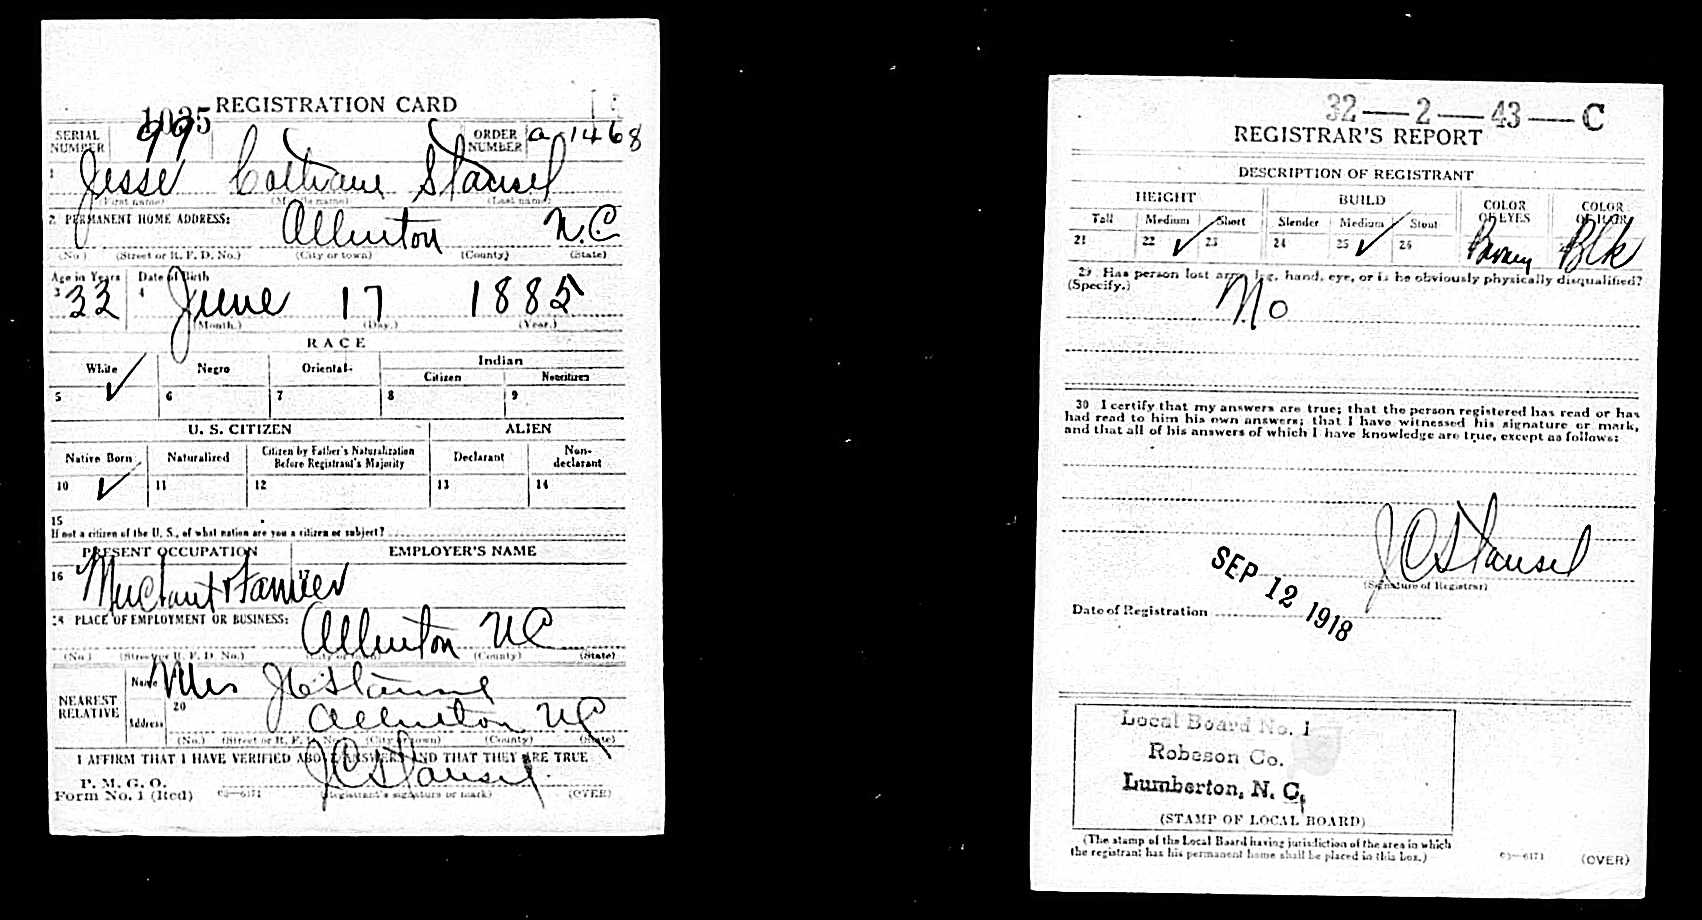 REGISTRATION CARD
1035
SERIAL NUMBER 99 ORDER NUMBER a 1468
1 Jesse Coltrane Stansel
(First name) (Middle name) (Last name)
2 PERMANENT HOME ADDRESS:
Allenton N.C.
(No.) (Street or R. F. D. No.) (City or town) (County) (State)
Age in Years Date of Birth
3 33 4 June 17 1885
(Month.) (Day.) (Year.)
RACE
White Negro Oriental Indian
Citizen Noncitizen
5 ✓ 6 7 8 9
U. S. CITIZEN ALIEN
Native Born Naturalized Citizen by Father's Naturalization Before Registrant's Majority Declarant Non-declarant
10 ✓ 11 12 13 14
15
If not a citizen of the U. S., of what nation are you a citizen or subject?
PRESENT OCCUPATION EMPLOYER'S NAME
16 Merchant & Farmer 17
18 PLACE OF EMPLOYMENT OR BUSINESS:
Allenton NC
(No.) (Street or R. F. D. No.) (City or town) (County) (State)
NEAREST RELATIVE
Name Mrs J C Stansel
20
Address Allenton NC
(No.) (Street or R. F. D. No.) (City or town) (County) (State)
I AFFIRM THAT I HAVE VERIFIED ABOVE ANSWERS AND THAT THEY ARE TRUE
P. M. G. O.
Form No. 1 (Red) 03—6171 J C Stansel
(Registrant's signature or mark) (OVER)
32—2—43—C
REGISTRAR'S REPORT
DESCRIPTION OF REGISTRANT
HEIGHT BUILD COLOR OF EYES COLOR OF HAIR
Tall Medium Short Slender Medium Stout
21 22 ✓ 23 24 25 ✓ 26 Brown Blk
29 Has person lost arm, leg, hand, eye, or is he obviously physically disqualified?
(Specify.)
No
30 I certify that my answers are true; that the person registered has read or has
had read to him his own answers; that I have witnessed his signature or mark,
and that all of his answers of which I have knowledge are true, except as follows:
J C Stansel
(Signature of Registrar)
Date of Registration SEP 12 1918
Local Board No. 1
Robeson Co.
Lumberton, N. C.
(STAMP OF LOCAL BOARD)
(The stamp of the Local Board having jurisdiction of the area in which
the registrant has his permanent home shall be placed in this box.)
03—6171 (OVER)